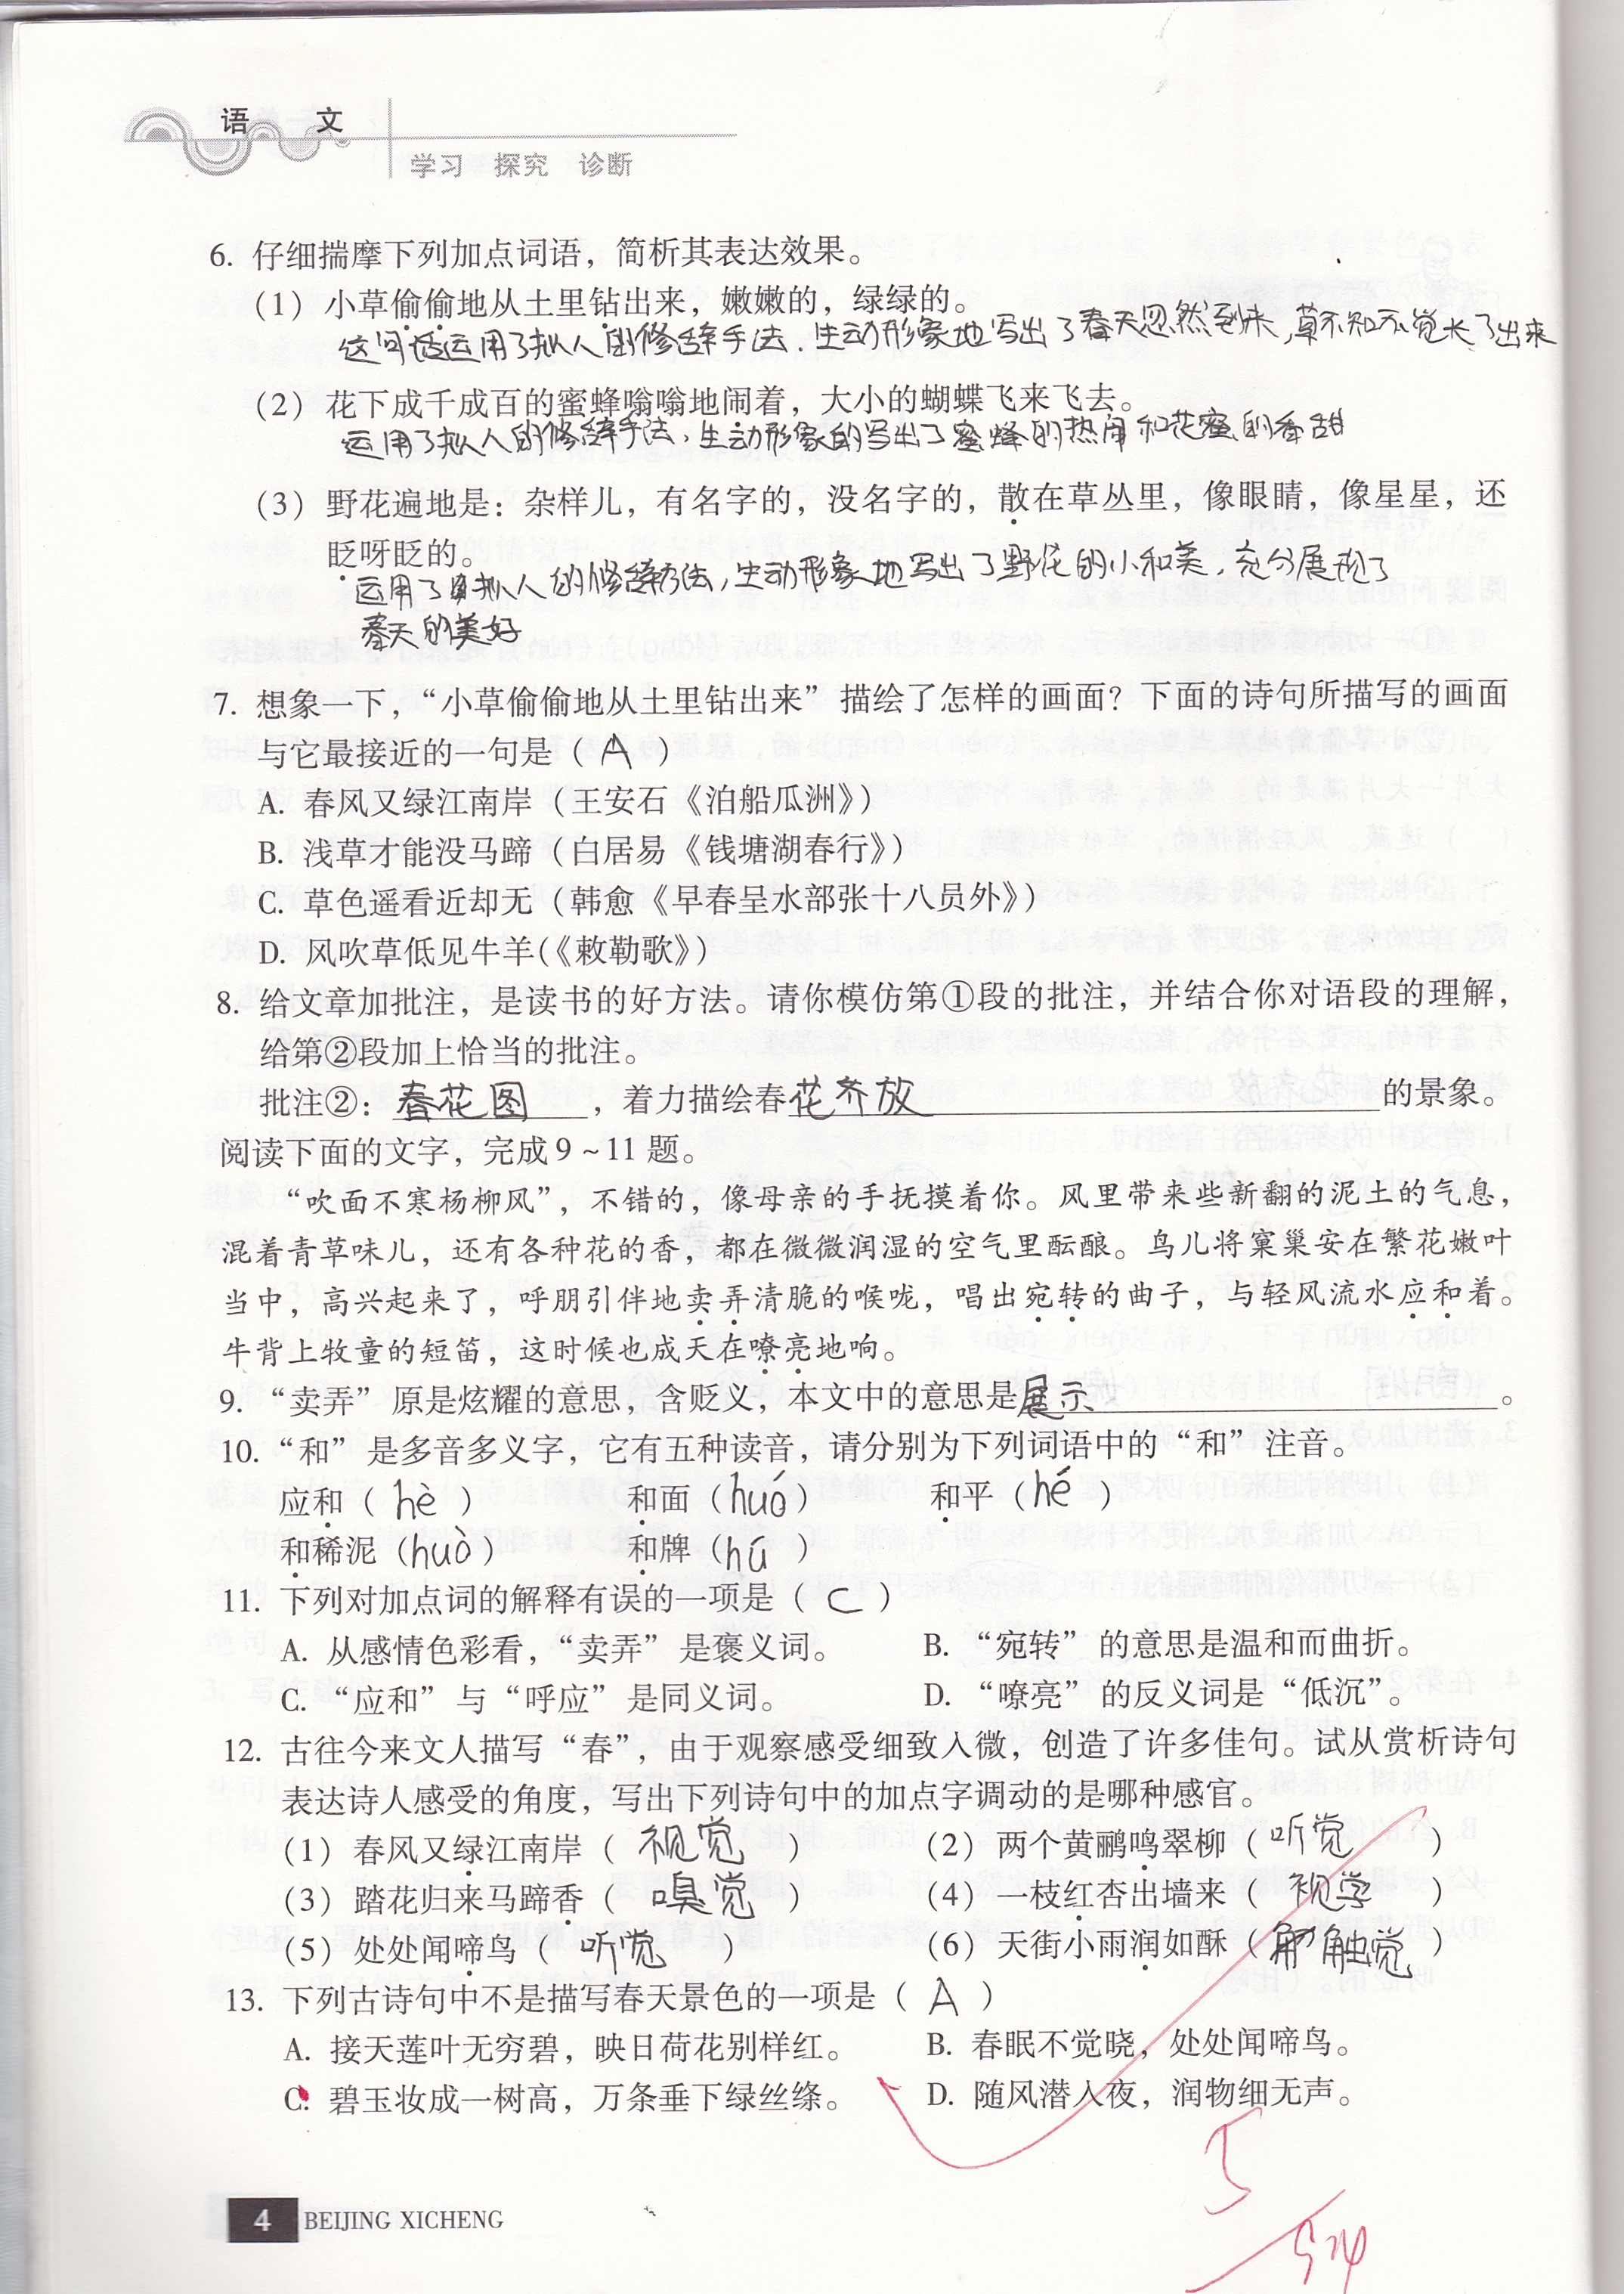 语 文
学习 探究 诊断
6. 仔细揣摩下列加点词语，简析其表达效果。
（1）小草偷偷地从土里钻出来，嫩嫩的，绿绿的。
这句话运用了拟人的修辞手法，生动形象地写出了春天忽然到来，草不知不觉长了出来
（2）花下成千成百的蜜蜂嗡嗡地闹着，大小的蝴蝶飞来飞去。
运用了拟人的修辞手法，生动形象的写出了蜜蜂的热闹和花蜜的香甜
（3）野花遍地是：杂样儿，有名字的，没名字的，散在草丛里，像眼睛，像星星，还
眨呀眨的。
运用了拟人的修辞方法，生动形象地写出了野花的小和美，充分展现了
春天的美好
7. 想象一下，“小草偷偷地从土里钻出来”描绘了怎样的画面？下面的诗句所描写的画面
与它最接近的一句是（ A ）
A. 春风又绿江南岸（王安石《泊船瓜洲》）
B. 浅草才能没马蹄（白居易《钱塘湖春行》）
C. 草色遥看近却无（韩愈《早春呈水部张十八员外》）
D. 风吹草低见牛羊(《敕勒歌》)
8. 给文章加批注，是读书的好方法。请你模仿第①段的批注，并结合你对语段的理解，
给第②段加上恰当的批注。
批注②：春花图，着力描绘春花齐放的景象。
阅读下面的文字，完成9～11题。
“吹面不寒杨柳风”，不错的，像母亲的手抚摸着你。风里带来些新翻的泥土的气息，
混着青草味儿，还有各种花的香，都在微微润湿的空气里酝酿。鸟儿将窠巢安在繁花嫩叶
当中，高兴起来了，呼朋引伴地卖弄清脆的喉咙，唱出宛转的曲子，与轻风流水应和着。
牛背上牧童的短笛，这时候也成天在嘹亮地响。
9. “卖弄”原是炫耀的意思，含贬义，本文中的意思是展示。
10. “和”是多音多义字，它有五种读音，请分别为下列词语中的“和”注音。
应和（ hè ） 和面（ huó ） 和平（ hé ）
和稀泥（ huò ） 和牌（ hú ）
11. 下列对加点词的解释有误的一项是（ C ）
A. 从感情色彩看，“卖弄”是褒义词。 B. “宛转”的意思是温和而曲折。
C. “应和”与“呼应”是同义词。 D. “嘹亮”的反义词是“低沉”。
12. 古往今来文人描写“春”，由于观察感受细致入微，创造了许多佳句。试从赏析诗句
表达诗人感受的角度，写出下列诗句中的加点字调动的是哪种感官。
（1）春风又绿江南岸（ 视觉 ） （2）两个黄鹂鸣翠柳（ 听觉 ）
（3）踏花归来马蹄香（ 嗅觉 ） （4）一枝红杏出墙来（ 视学 ）
（5）处处闻啼鸟（ 听觉 ） （6）天街小雨润如酥（ 触觉 ）
13. 下列古诗句中不是描写春天景色的一项是（ A ）
A. 接天莲叶无穷碧，映日荷花别样红。 B. 春眠不觉晓，处处闻啼鸟。
C. 碧玉妆成一树高，万条垂下绿丝绦。 D. 随风潜入夜，润物细无声。
4 BEIJING XICHENG